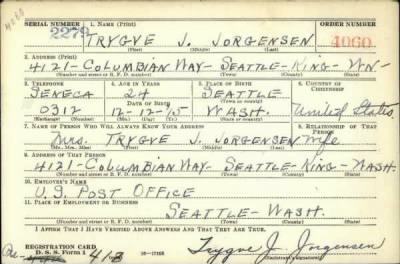 4060
SERIAL NUMBER 1. NAME (Print) ORDER NUMBER
2279 TRYGVE J. JORGENSEN 4060
(First) (Middle) (Last)
2. ADDRESS (Print)
4121-COLUMBIAN WAY-SEATTLE-KING-WN-
(Number and street or R. F. D. number) (Town) (County) (State)
3. TELEPHONE 4. AGE IN YEARS 5. PLACE OF BIRTH 6. COUNTRY OF CITIZENSHIP
SENECA 24 SEATTLE
DATE OF BIRTH (Town or county)
0312 12-12-15 WASH. United States
(Mo.) (Day) (Yr.) (State or country)
7. NAME OF PERSON WHO WILL ALWAYS KNOW YOUR ADDRESS 8. RELATIONSHIP OF THAT PERSON
Mrs. TRYGVE J. JORGENSEN Wife
(First) (Middle) (Last)
9. ADDRESS OF THAT PERSON
4121-COLUMBIAN WAY-SEATTLE-KING-WASH.
(Number and street or R. F. D. number) (Town) (County) (State)
10. EMPLOYER'S NAME
U.S. POST OFFICE
11. PLACE OF EMPLOYMENT OR BUSINESS
SEATTLE-WASH.
(Number and street or R. F. D. number) (Town) (County) (State)
I AFFIRM THAT I HAVE VERIFIED ABOVE ANSWERS AND THAT THEY ARE TRUE.
REGISTRATION CARD
D. S. S. FORM 1 Trygve J. Jorgensen
(Registrant's signature)